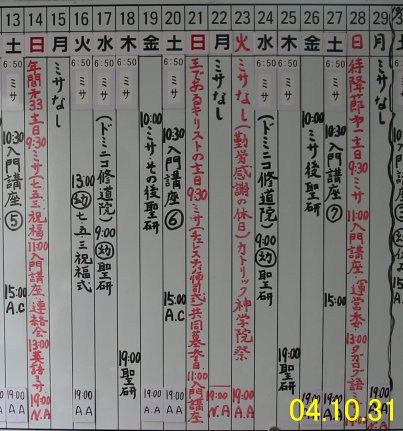 13 14 15 16 17 18 19 20 21 22 23 24 25 26 27 28 29
土 日 月 火 水 木 金 土 日 月 火 水 木 金 土 日 月
6:50 ミサ
10:30 入門講座⑤
15:00 A.C
19:00 A.A
年間第33主日 9:30 ミサ(七五三祝福) 11:00 入門講座・連絡会 13:00 英語ミサ
19:00 N.A
ミサなし
6:50 ミサ
13:00 ㊙幼 七五三祝福式
19:00 A.A
6:50 ミサ
(ドミニコ修道院) 9:00 幼 聖研
6:50 ミサ
19:00 聖研
10:00 ミサ・その後聖研
19:00 A.A
6:50 ミサ
10:30 入門講座⑥
15:00 A.C
19:00 A.A
王であるキリストの主日 9:30 ミサ 共同墓参日・11:00 入門講座
ミサなし
19:00 N.A
ミサなし(勤労感謝の休日) カトリック神学院祭
19:00 A.A
6:50 ミサ
(ドミニコ修道院) 9:00 幼 聖研
6:50 ミサ
19:00 聖研
10:00 ミサ後聖研
19:00 A.A
6:50 ミサ
10:30 入門講座⑦
15:00 A.C
19:00 A.A
待降節第一主日 9:30 ミサ 11:00 入門講座・運営委・13:00 タガログ語ミサ
19:00 N.A
ミサなし
04.10.31